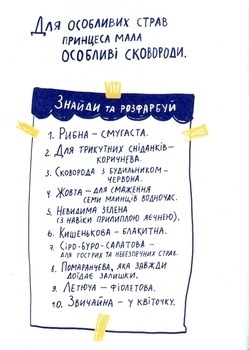 Для особливих страв
принцеса мала
особливі сковороди.
Знайди та розфарбуй
1. Рибна – смугаста.
2. Для трикутних сніданків–
коричнева.
3. Сковорода з будильником–
червона.
4. Жовта – для смаження
семи млинців водночас.
5. Невидима зелена
(з навіки прилиплою яєчнею).
6. Кишенькова – блакитна.
7. Сіро-буро-салатова –
для гострих та небезпечних страв.
8. Помаранчева, яка завжди
доїдає залишки.
9. Летюча – фіолетова.
10. Звичайна – у квіточку.